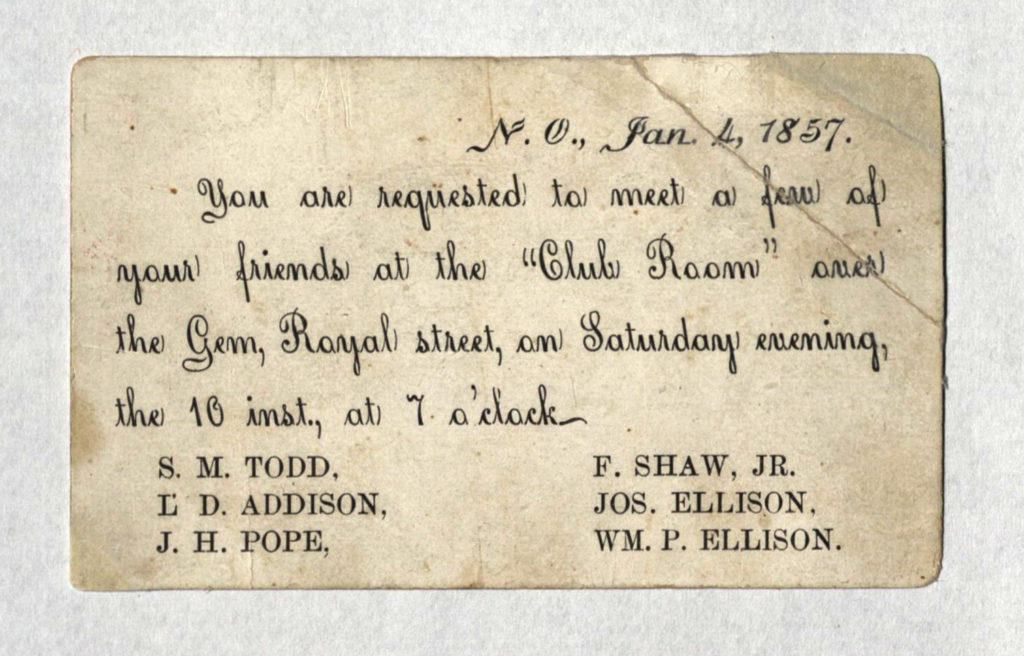 N. O., Jan. 4, 1857.
You are requested to meet a few of
your friends at the "Club Room" over
the Gem, Royal street, on Saturday evening,
the 10 inst., at 7 o'clock
S. M. TODD,
L D. ADDISON,
J. H. POPE,
F. SHAW, JR.
JOS. ELLISON,
WM. P. ELLISON.